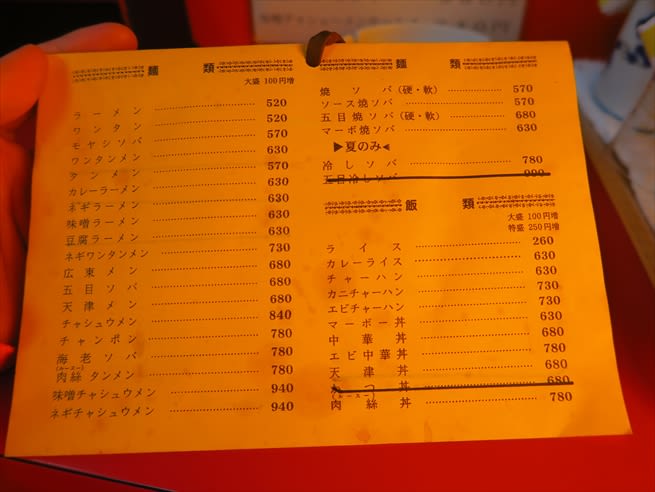 麺 類
大盛 100円増
ラーメン 520
ワンタン 520
モヤシソバ 570
ワンタンメン 630
タンメン 570
カレーラーメン 630
ネギラーメン 630
味噌ラーメン 630
豆腐ラーメン 630
ネギワンタンメン 730
広東メン 680
五目ソバ 680
天津メン 680
チャシュウメン 840
チャンポン 780
海老ソバ 780
(ルースー)
肉絲タンメン 780
味噌チャシュウメン 940
ネギチャシュウメン 940
麺 類
焼ソバ(硬・軟) 570
ソース焼ソバ 570
五目焼ソバ(硬・軟) 680
マーボ焼ソバ 630
▶夏のみ◀
冷しソバ 780
五目冷しソバ
飯 類
大盛 100円増
特盛 250円増
ライス 260
カレーライス 630
チャーハン 630
カニチャーハン 730
エビチャーハン 730
マーボー丼 630
中華丼 680
エビ中華丼 780
天津丼 680
つ丼 680
(ルースー)
肉絲丼 780